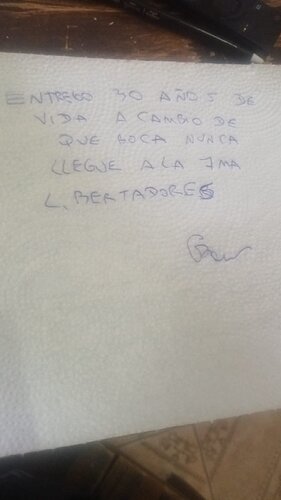 ENTREGO 30 AÑOS DE
VIDA A CAMBIO DE
QUE BOCA NUNCA
LLEGUE A LA 7MA
LIBERTADORES